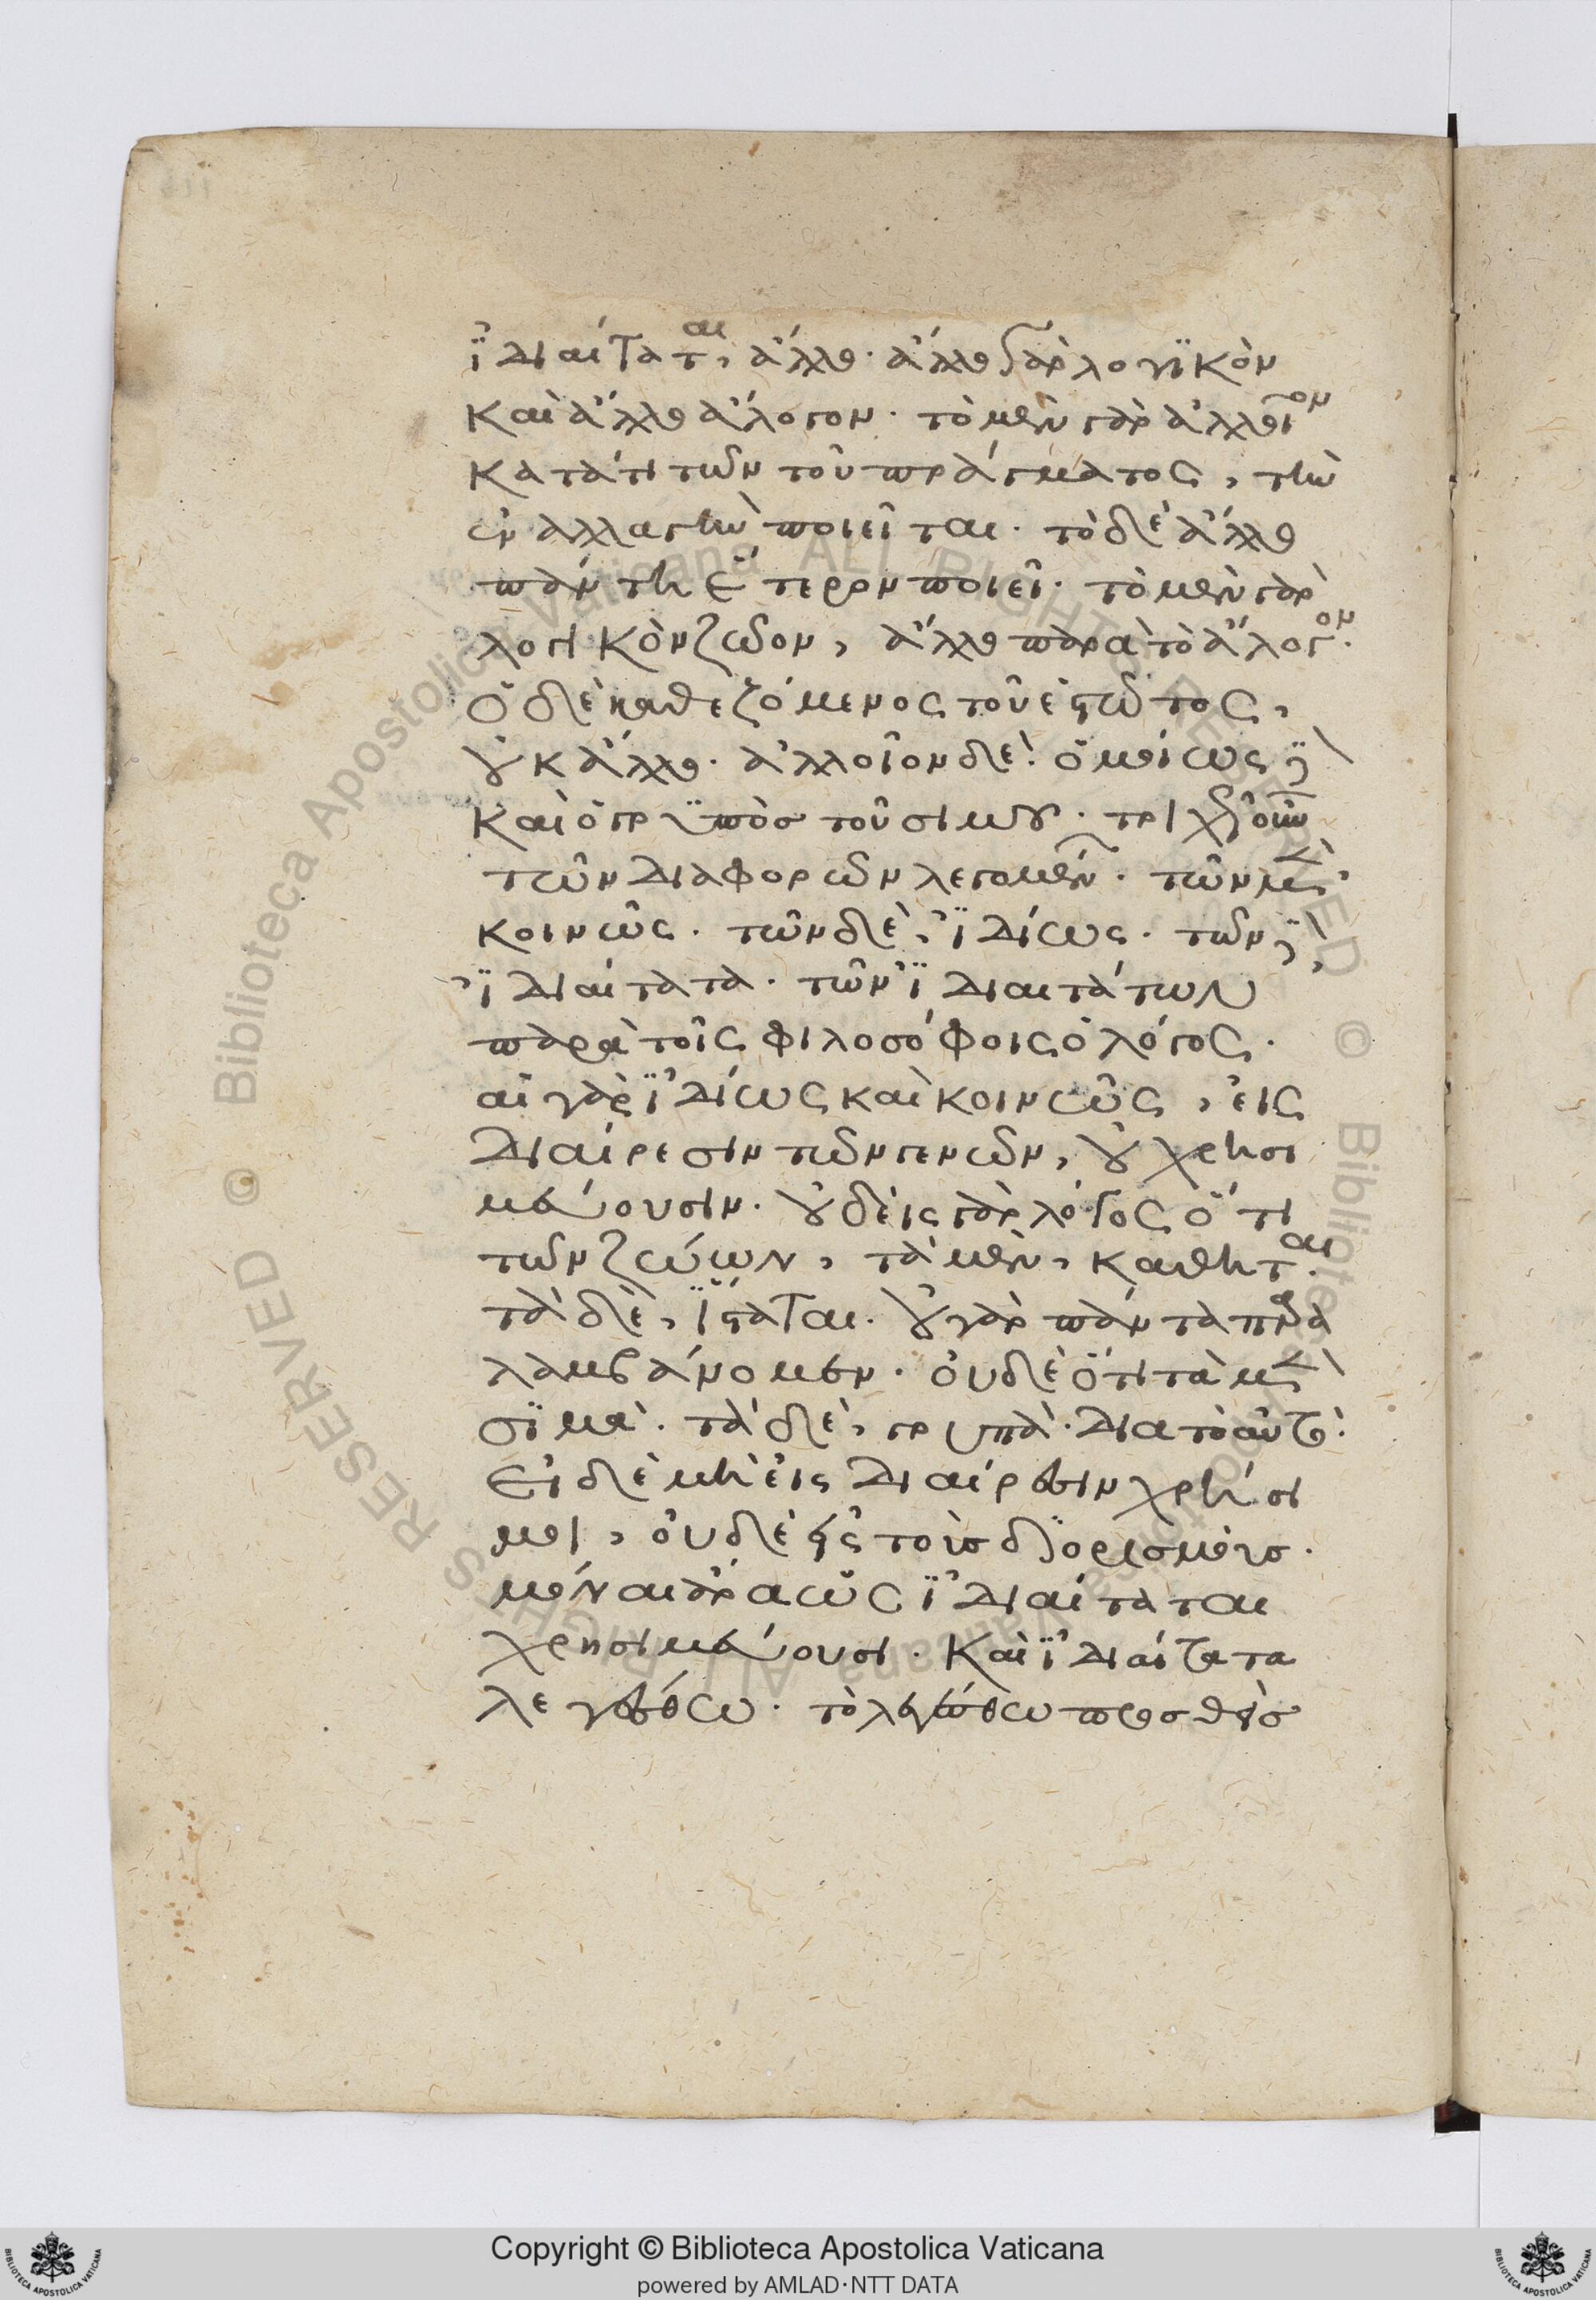 ἰδιαίταται, ἄλλο· ἄλλο γὰρ λογικὸν
καὶ ἄλλο ἄλογον· τὸ μὲν γὰρ ἀλλοῖον
κατά τι τῶν τοῦ πράγματος, τὴν
ἐναλλαγὴν ποιεῖται· τὸ δὲ ἄλλο
πάντη ἕτερον ποιεῖ· τὸ μὲν γὰρ
λογικὸν ζῶον, ἄλλο παρὰ τὸ ἄλογον·
ὁ δὲ καθεζόμενος τοῦ ἑστῶτος,
οὐκ ἄλλο· ἀλλοῖον δέ· ὁμοίως
καὶ ὁ γρυπὸς τοῦ σιμοῦ· τριχῶς οὖν
τῶν διαφορῶν λεγομένων· τῶν μὲν
κοινῶς· τῶν δὲ, ἰδίως· τῶν δὲ
ἰδιαίτατα· τῶν ἰδιαιτάτων
παρὰ τοῖς φιλοσόφοις ὁ λόγος·
αἱ γὰρ ἰδίως καὶ κοινῶς, εἰς
διαίρεσιν τῶν γενῶν, οὐ χρησι
μεύουσιν· οὐδεὶς γὰρ λόγος ὅτι
τῶν ζώων, τὰ μὲν, κάθηται·
τὰ δὲ, ἵσταται· οὐ γὰρ πάντα
λαμβάνομεν· οὐδὲ ὅτι τὰ μὲν
σιμὰ· τὰ δὲ, γρυπὰ· διὰ τὸ αὐτό·
εἰ δὲ μὴ εἰς διαίρεσιν χρήσι
μοι, οὐδὲ ἐν τοῖς διορισμοῖς·
μόναι ἄρα ὡς ἰδιαίταται
χρησιμεύουσι· καὶ ἰδιαίτατα
λεγέσθω· τὸ λεγέσθω προσθεὶς